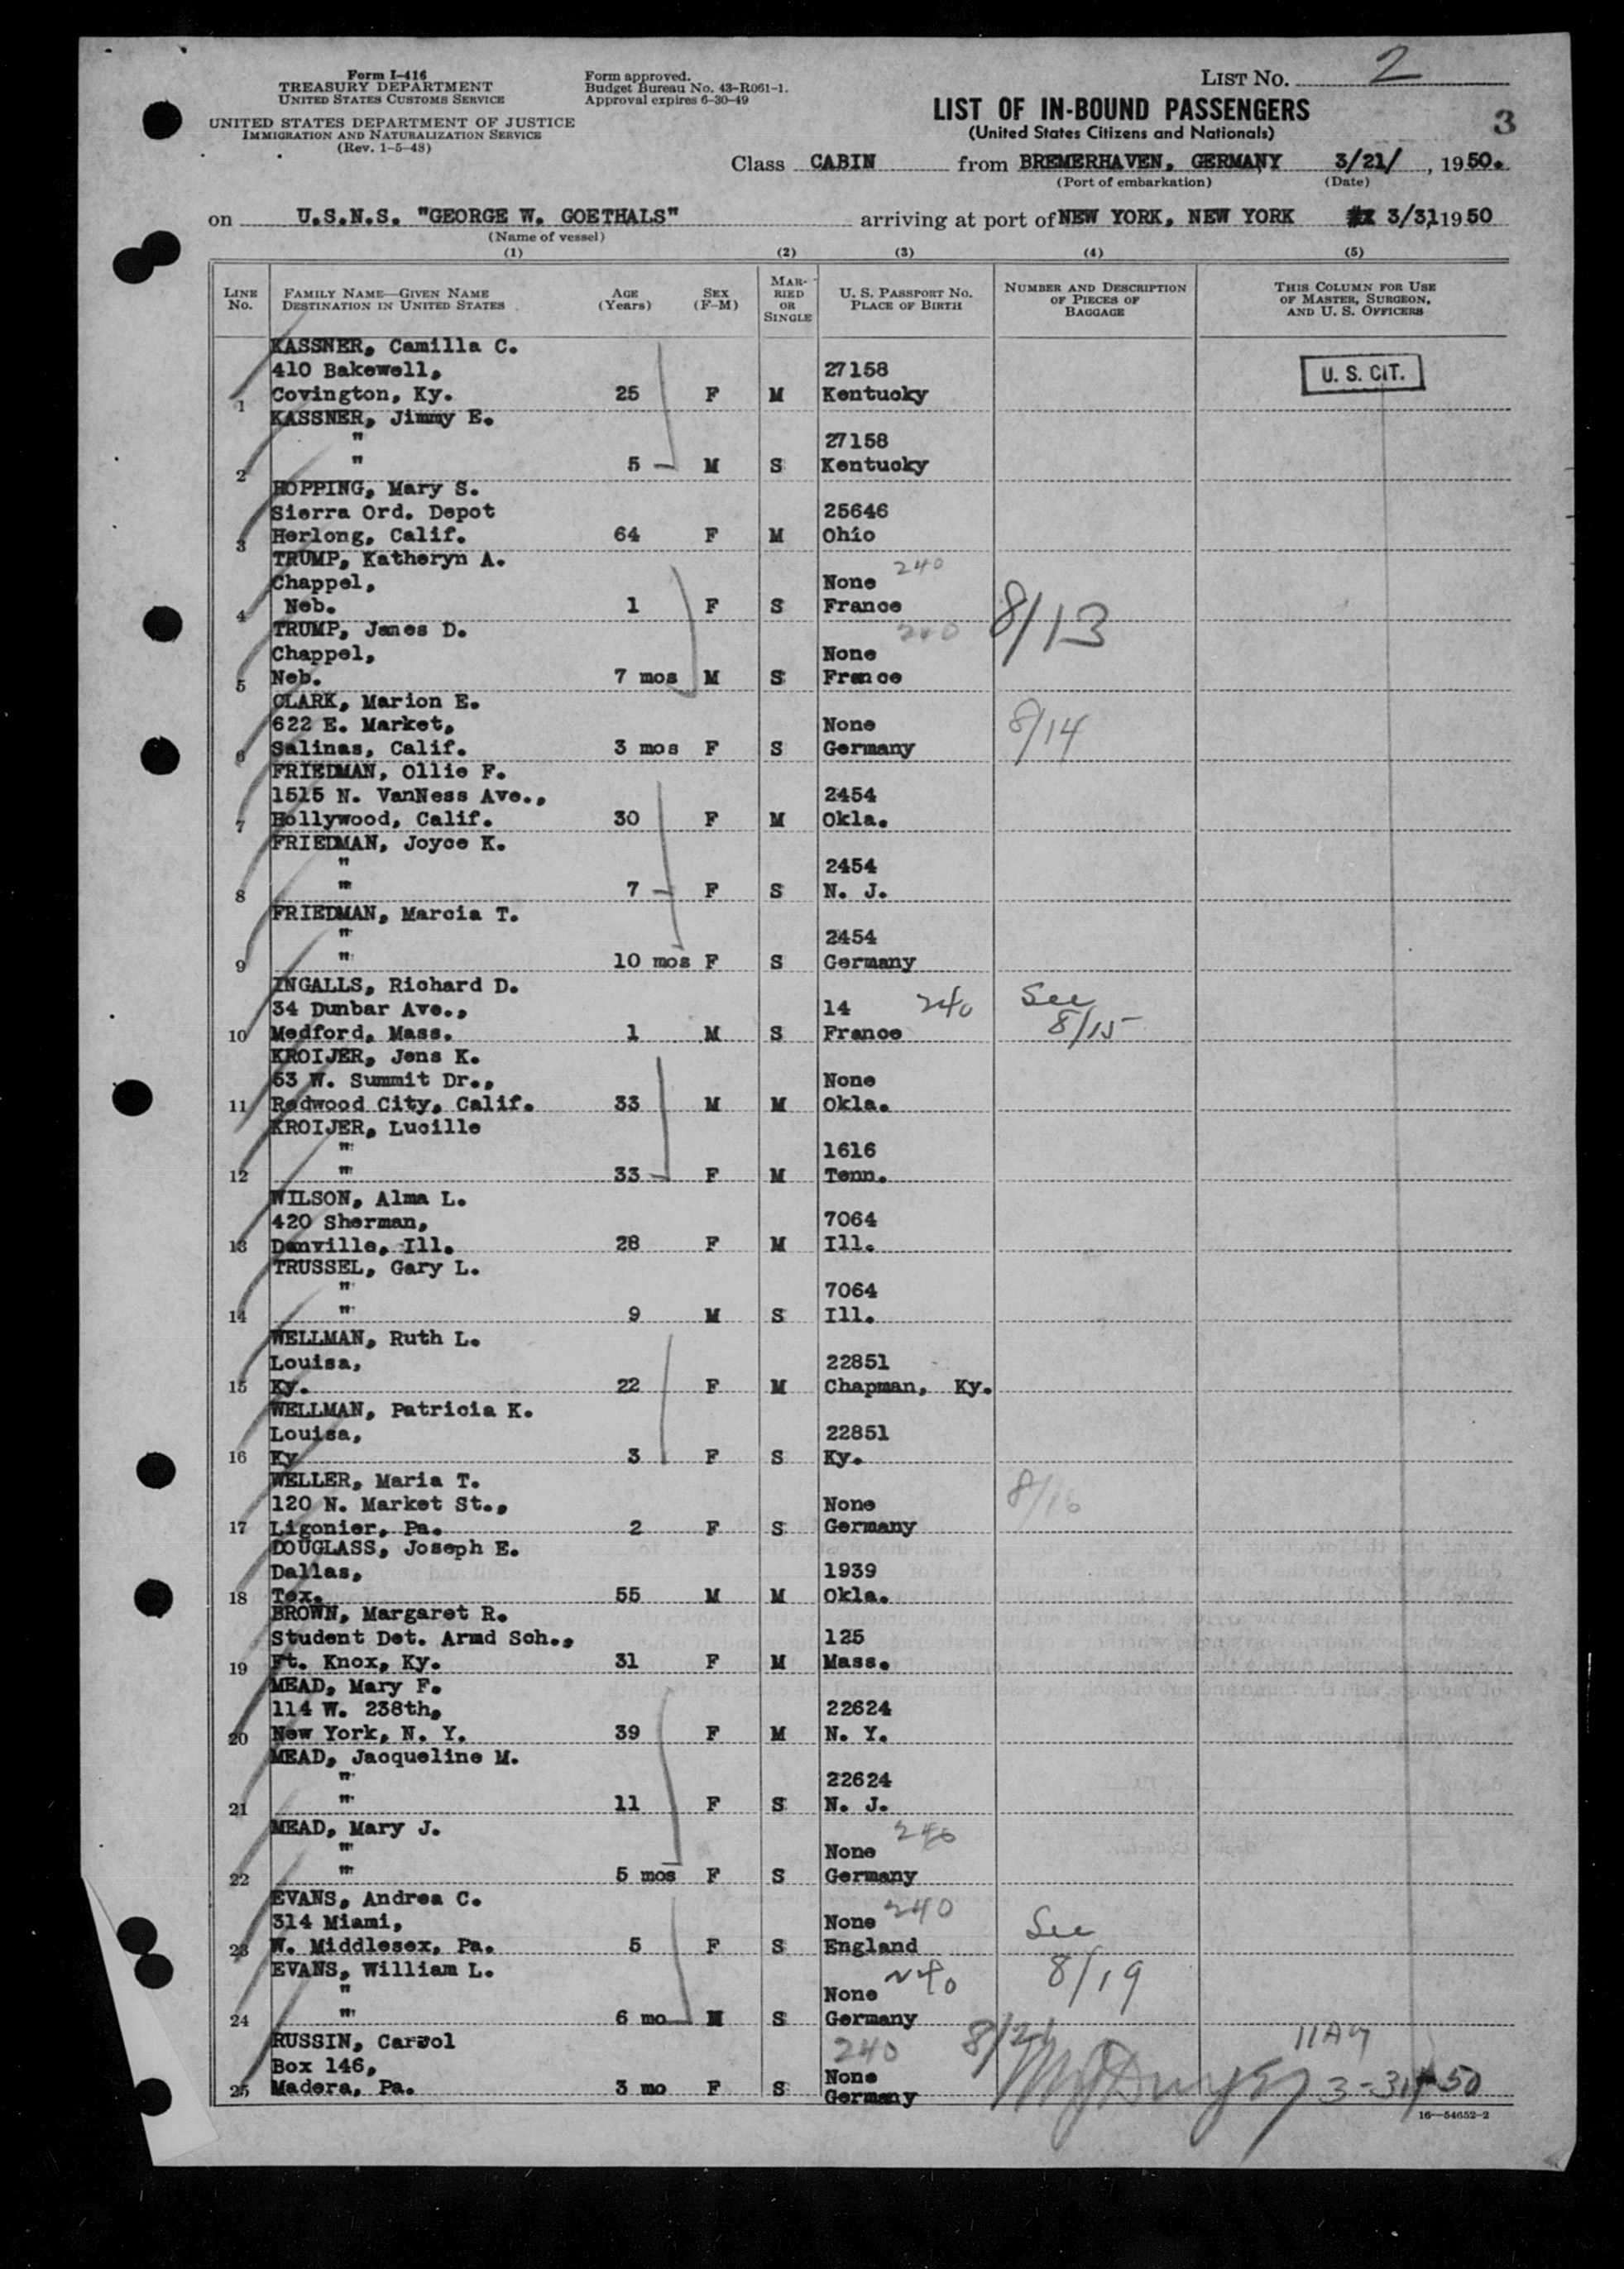 Form I-416
TREASURY DEPARTMENT
UNITED STATES CUSTOMS SERVICE
UNITED STATES DEPARTMENT OF JUSTICE
IMMIGRATION AND NATURALIZATION SERVICE
(Rev. 1-5-48)
Form approved.
Budget Bureau No. 43-R061-1.
Approval expires 6-30-49
LIST NO. 2
LIST OF IN-BOUND PASSENGERS
(United States Citizens and Nationals)
3
Class CABIN from BREMERHAVEN, GERMANY 3/21/, 1950.
(Port of embarkation) (Date)
on U.S.N.S. "GEORGE W. GOETHALS" arriving at port of NEW YORK, NEW YORK 3/31, 1950
(Name of vessel)
(1) (2) (3) (4) (5)
LINE No. FAMILY NAME—GIVEN NAME DESTINATION IN UNITED STATES AGE (Years) SEX (F-M) MARRIED OR SINGLE U. S. PASSPORT NO. PLACE OF BIRTH NUMBER AND DESCRIPTION OF PIECES OF BAGGAGE THIS COLUMN FOR USE OF MASTER, SURGEON, AND U. S. OFFICERS
KASSNER, Camilla C.
410 Bakewell, 27158 U. S. CIT.
1 Covington, Ky. 25 F M Kentucky
KASSNER, Jimmy E.
" 27158
2 " 5 M S Kentucky
HOPPING, Mary S.
Sierra Ord. Depot 25646
3 Herlong, Calif. 64 F M Ohio
TRUMP, Katheryn A. 240
Chappel, None
4 Neb. 1 F S France 8/13
TRUMP, James D. 240
Chappel, None
5 Neb. 7 mos M S France
CLARK, Marion E.
622 E. Market, None 8/14
6 Salinas, Calif. 3 mos F S Germany
FRIEDMAN, Ollie F.
1515 N. VanNess Ave., 2454
7 Hollywood, Calif. 30 F M Okla.
FRIEDMAN, Joyce K.
" 2454
8 " 7 F S N. J.
FRIEDMAN, Marcia T.
" 2454
9 " 10 mos F S Germany
INGALLS, Richard D.
34 Dunbar Ave., 14 240 See
10 Medford, Mass. 1 M S France 8/15
KROIJER, Jens K.
53 W. Summit Dr., None
11 Redwood City, Calif. 33 M M Okla.
KROIJER, Lucille
" 1616
12 " 33 F M Tenn.
WILSON, Alma L.
420 Sherman, 7064
13 Danville, Ill. 28 F M Ill.
TRUSSEL, Gary L.
" 7064
14 " 9 M S Ill.
WELLMAN, Ruth L.
Louisa, 22851
15 Ky. 22 F M Chapman, Ky.
WELLMAN, Patricia K.
Louisa, 22851
16 Ky 3 F S Ky.
WELLER, Maria T.
120 N. Market St., None 8/16
17 Ligonier, Pa. 2 F S Germany
DOUGLASS, Joseph E.
Dallas, 1939
18 Tex. 55 M M Okla.
BROWN, Margaret R.
Student Det. Armd Sch., 125
19 Ft. Knox, Ky. 31 F M Mass.
MEAD, Mary F.
114 W. 238th, 22624
20 New York, N. Y. 39 F M N. Y.
MEAD, Jacqueline M.
" 22624
21 " 11 F S N. J.
MEAD, Mary J. 240
" None
22 " 5 mos F S Germany
EVANS, Andrea C.
314 Miami, None 240 See
23 W. Middlesex, Pa. 5 F S England
EVANS, William L. 240 8/19
" None
24 " 6 mo M S Germany
RUSSIN, Carol 240 11A9
Box 146, None
25 Madera, Pa. 3 mo F S Germany 3-31-50
16—54652-2